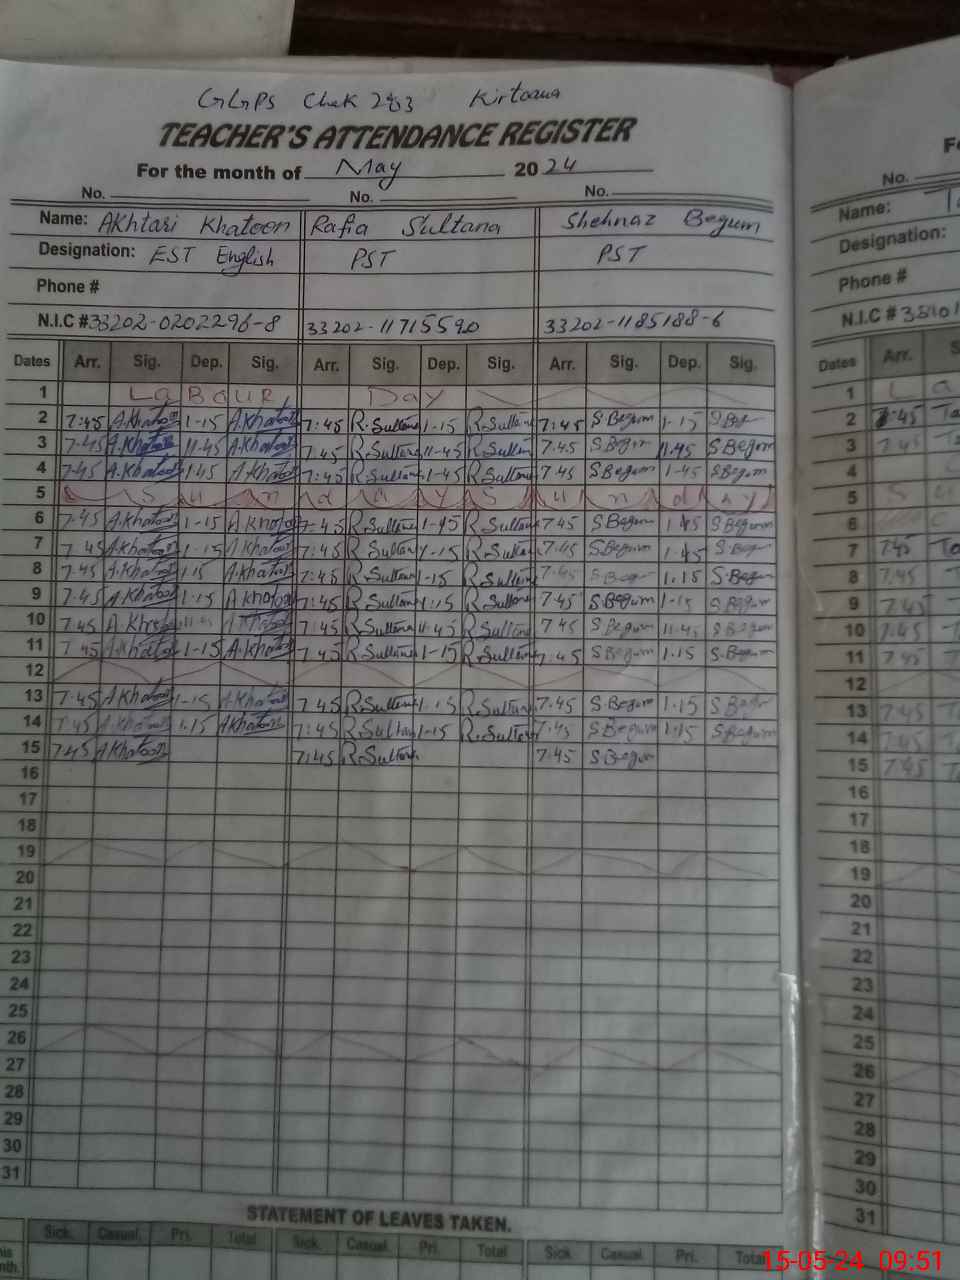 GGPS Chak 243 Kirtoana
TEACHER'S ATTENDANCE REGISTER
For the month of May 2024
No. No. No.
Name: AKhtari Khatoon Rafia Sultana Shehnaz Begum
Designation: EST English PST PST
Phone #
N.I.C # 33202-0202296-8 33202-11715590 33202-1185188-6
Dates Arr. Sig. Dep. Sig. Arr. Sig. Dep. Sig. Arr. Sig. Dep. Sig.
1 LaBOUR Day
2 7:45 A.Khatoon 1-15 A.Khatoon 7:45 R.Sultana 1-15 R.Sultana 7:45 S Begum 1-15 S Begum
3 7-45 A.Khatoon 11-45 A.Khatoon 7:45 R.Sultana 11-45 R.Sultana 7.45 S Begum 11.45 S Begum
4 7-45 A.Khatoon 1.45 A.Khatoon 7:45 R.Sultana 1-45 R.Sultana 7.45 S Begum 1-45 S.Begum
5 Sunday Sunday
6 7.45 A.Khatoon 1-15 A Khatoon 7-45 R.Sultana 1-45 R.Sultana 7.45 S.Begum 1.45 S Begum
7 7.45 A.Khatoon 1-15 A.Khatoon 7:45 R.Sultana 1-15 R.Sultana 7.45 S.Begum 1.45 S Begum
8 7.45 A.Khatoon 1.15 A.Khatoon 7:45 R.Sultana 1-15 R.Sultana 7.45 S Begum 1.15 S.Begum
9 7-45 A.Khatoon 1-15 A Khatoon 7:45 R.Sultana 1:15 R.Sultana 7.45 S Begum 1-15 S.Begum
10 7.45 A.Khatoon 11-45 A.Khatoon 7:45 R.Sultana 11-45 R.Sultana 7.45 S Begum 11.45 S.Begum
11 7.45 A.Khatoon 1-15 A.Khatoon 7.45 R.Sultana 1-15 R.Sultana 7.45 S Begum 1.15 S.Begum
12
13 7.45 A.Khatoon 1-15 A.Khatoon 7.45 R.Sultana 1.15 R.Sultana 7.45 S.Begum 1.15 S Begum
14 7.45 A.Khatoon 1.15 A.Khatoon 7:45 R.Sultana 1-15 R.Sultana 7.45 S Begum 1.15 S Begum
15 7.45 A Khatoon 7:45 R.Sultana 7.45 S Begum
16
17
18
19
20
21
22
23
24
25
26
27
28
29
30
31
STATEMENT OF LEAVES TAKEN.
Sick. Casual. Pri. Total Sick. Casual. Pri. Total Sick Casual. Pri. Total
No.
Name:
Designation:
Phone #
N.I.C #
Dates Arr.
1
2 7.45
3 7.45
4
5
6
7 7.45
8 7.45
9 7.45
10 7.45
11 7.45
12
13 7.45
14 7.45
15 7.45
16
17
18
19
20
21
22
23
24
25
26
27
28
29
30
31
15-05-24 09:51